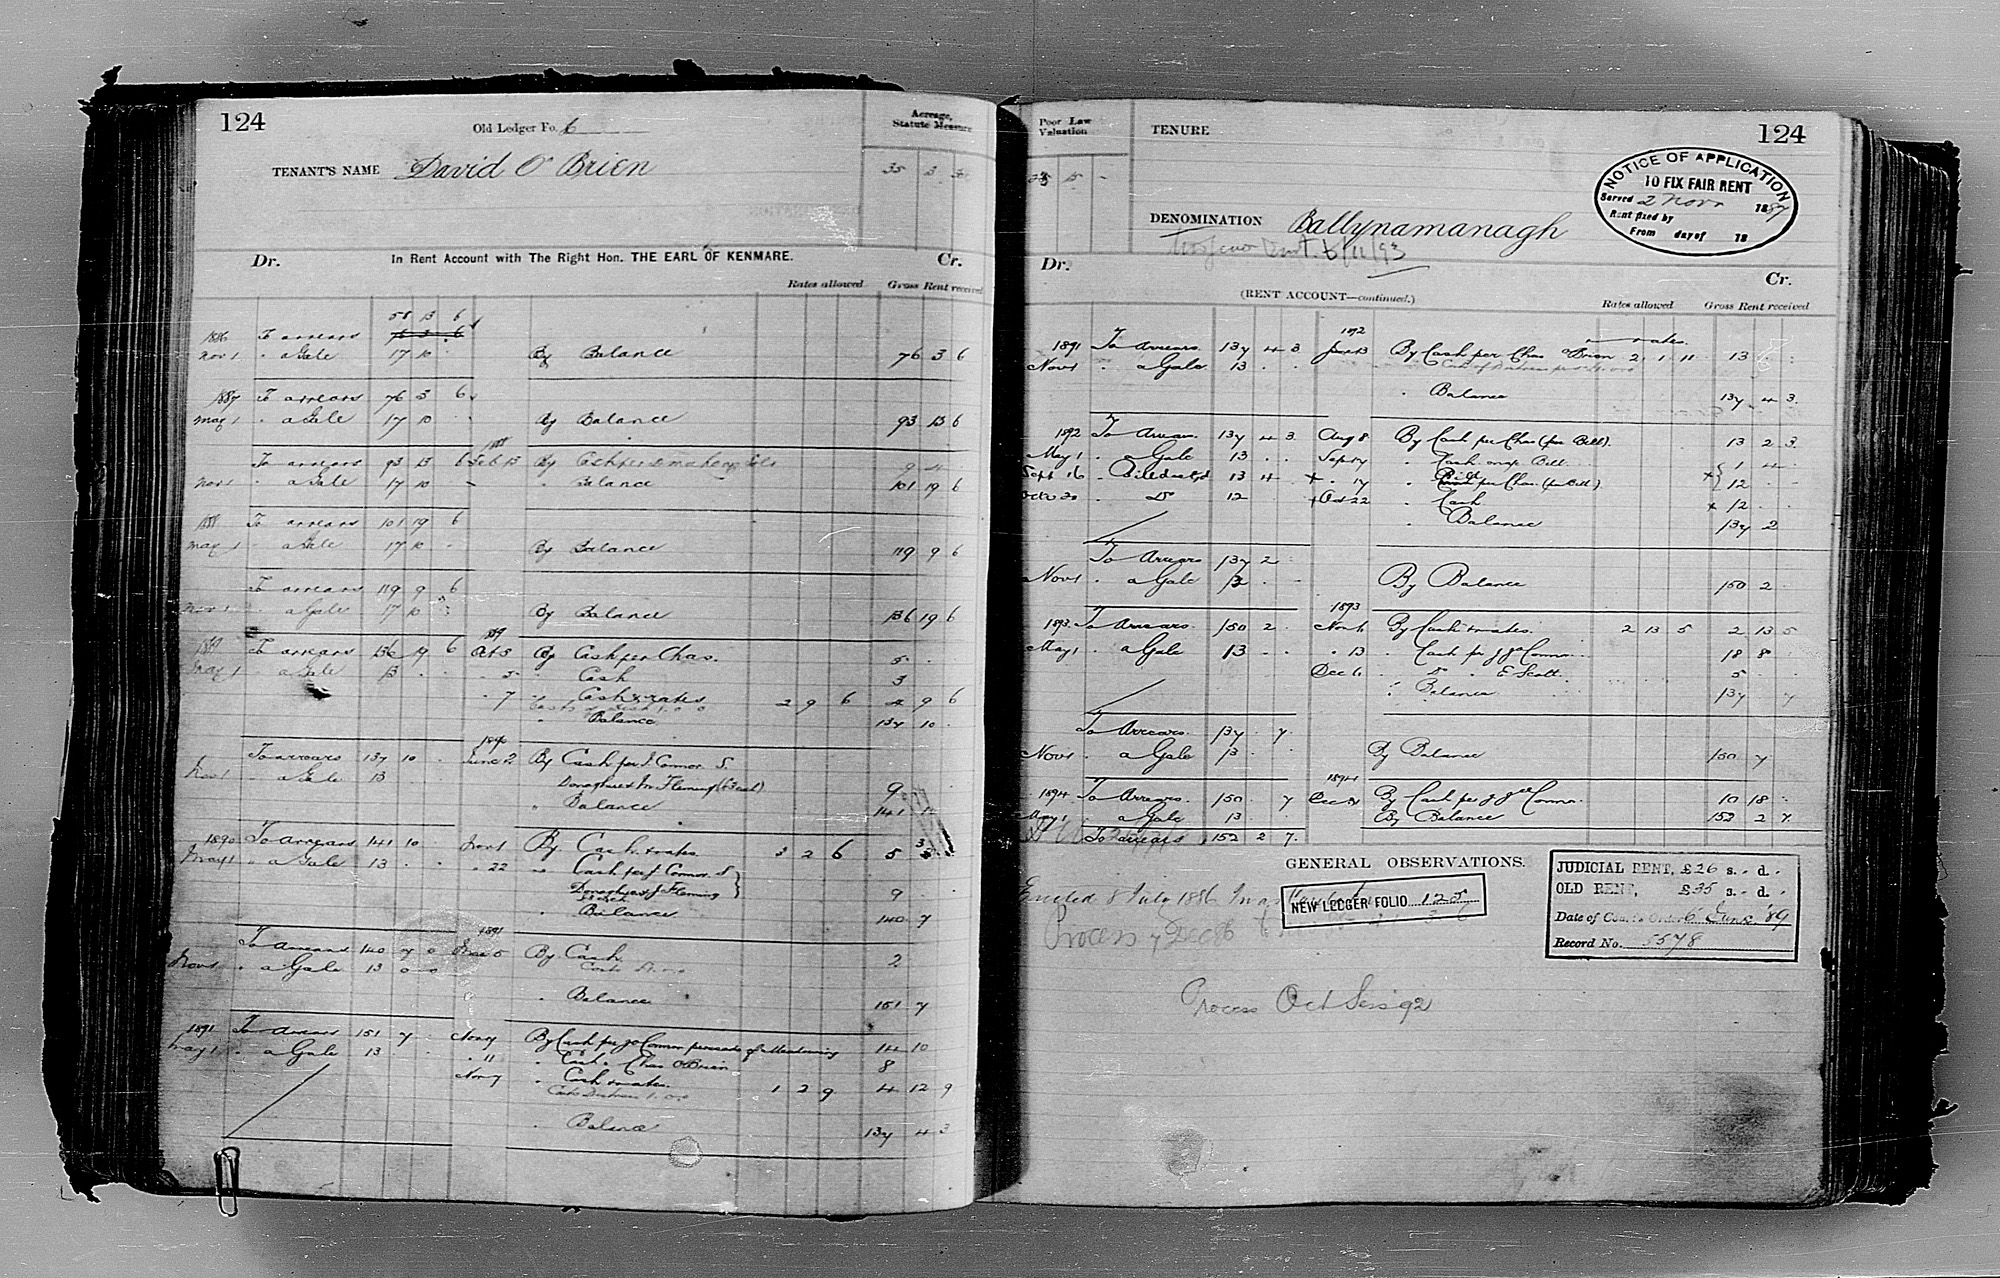 124
Old Ledger Fo. 6
Acreage, Statute Measure
TENANT'S NAME David O'Brien
35 3
Dr. In Rent Account with The Right Hon. THE EARL OF KENMARE. Cr.
Rates allowed Gross Rent received
58 13 6
1886 To arrears 76 3 6
Nov 1 " a Gale 17 10 By Balance 76 3 6
1887 To arrears 76 3 6
May 1 " a Gale 17 10 By Balance 93 13 6
1888
To arrears 93 13 6 Feb 13 By Cash per
Nov 1 " a Gale 17 10 - " Balance 101 19 6
1888 To arrears 101 19 6
May 1 " a Gale 17 10 - By Balance 119 9 6
To arrears 119 9 6
Nov 1 " a Gale 17 10 By Balance 136 19 6
1889
1889 To arrears 136 19 6 Oct 5 By Cash per Chas. 5
May 1 " a Gale 13 . . " 5 " Cash 3
" 7 " Cash & rates 2 9 6 4 9 6
" Balance 137 10 .
1890
To arrears 137 10 . June 2 By Cash per J. Connor S.
Nov 1 " a Gale 13 Donoghue & M. Fleming (£3 each) 9
" Balance 141 10
1890 To Arrears 141 10 . Nov 1 By Cash & rates 3 2 6 5
May 1 " a Gale 13 . . " 22 " Cash per J Connor. S
Donoghue & J Fleming 9
£3 each
" Balance 140 7
1891
To Arrears 140 7 0 By Cash 2
Nov 1 " a Gale 13 0 0
" Balance 151 7
1891 To Arrears 151 7 . May By Cash per Jo Connor 14 10
May 1 " a Gale 13 . . " 11 " Cash " Chas O'Brien 8
Nov 7 " Cash & rates. 1 2 9 4 12 9
" Balance 137 4 3
Poor Law Valuation
TENURE
124
NOTICE OF APPLICATION
TO FIX FAIR RENT
Served 2 Novr 1887
Rent fixed by
From day of 18
DENOMINATION Ballynamanagh
6/11/93
Dr. Cr.
(RENT ACCOUNT—continued.)
Rates allowed Gross Rent received
1892
1891 To Arrears 137 4 3 By Cash per Chas O'Brien 2 . 1 . 11 13
Nov 1 " a Gale 13 . .
" Balance 137 4 3
1892 To Arrears 137 4 3 Aug 8 By Cash per Chas (per Bill). 13 2 3
May 1 " a Gale 13 . . Sep 17 " Cash on a/c Bill 1 4
Sept 16 " Bill 13 4 + " 17 " Bill per Chas. (per Bill) 12
Oct 20 " Do 12 + Oct 22 " Cash + 12
" Balance 137 2
To Arrears 137 2
Nov 1 " a Gale 13 By Balance 150 2
1893
1893 To Arrears 150 2 . Nov 6 By Cash & rates. 2 13 5 2 13 5
May 1 " a Gale 13 . . " 13 " Cash per Jno Connor 18 8
Dec 6 " E Scott 5
" Balance 137 . 7
To Arrears 137 . 7
Nov 1 " a Gale 13 By Balance 150 . 7
1894
1894 To Arrears 150 . 7 Dec By Cash per Jno Connor 10 18
May 1 " a Gale 13 . . By Balance 152 2 7
To arrears 152 2 7.
GENERAL OBSERVATIONS.
8 July 1886
NEW LEDGER FOLIO 125
Process 7 Dec 86
Process Oct Sess 92
JUDICIAL RENT, £26 s. - d. -
OLD RENT, £35 s. - d. -
Date of Court's Order 6 June '89
Record No. 5578